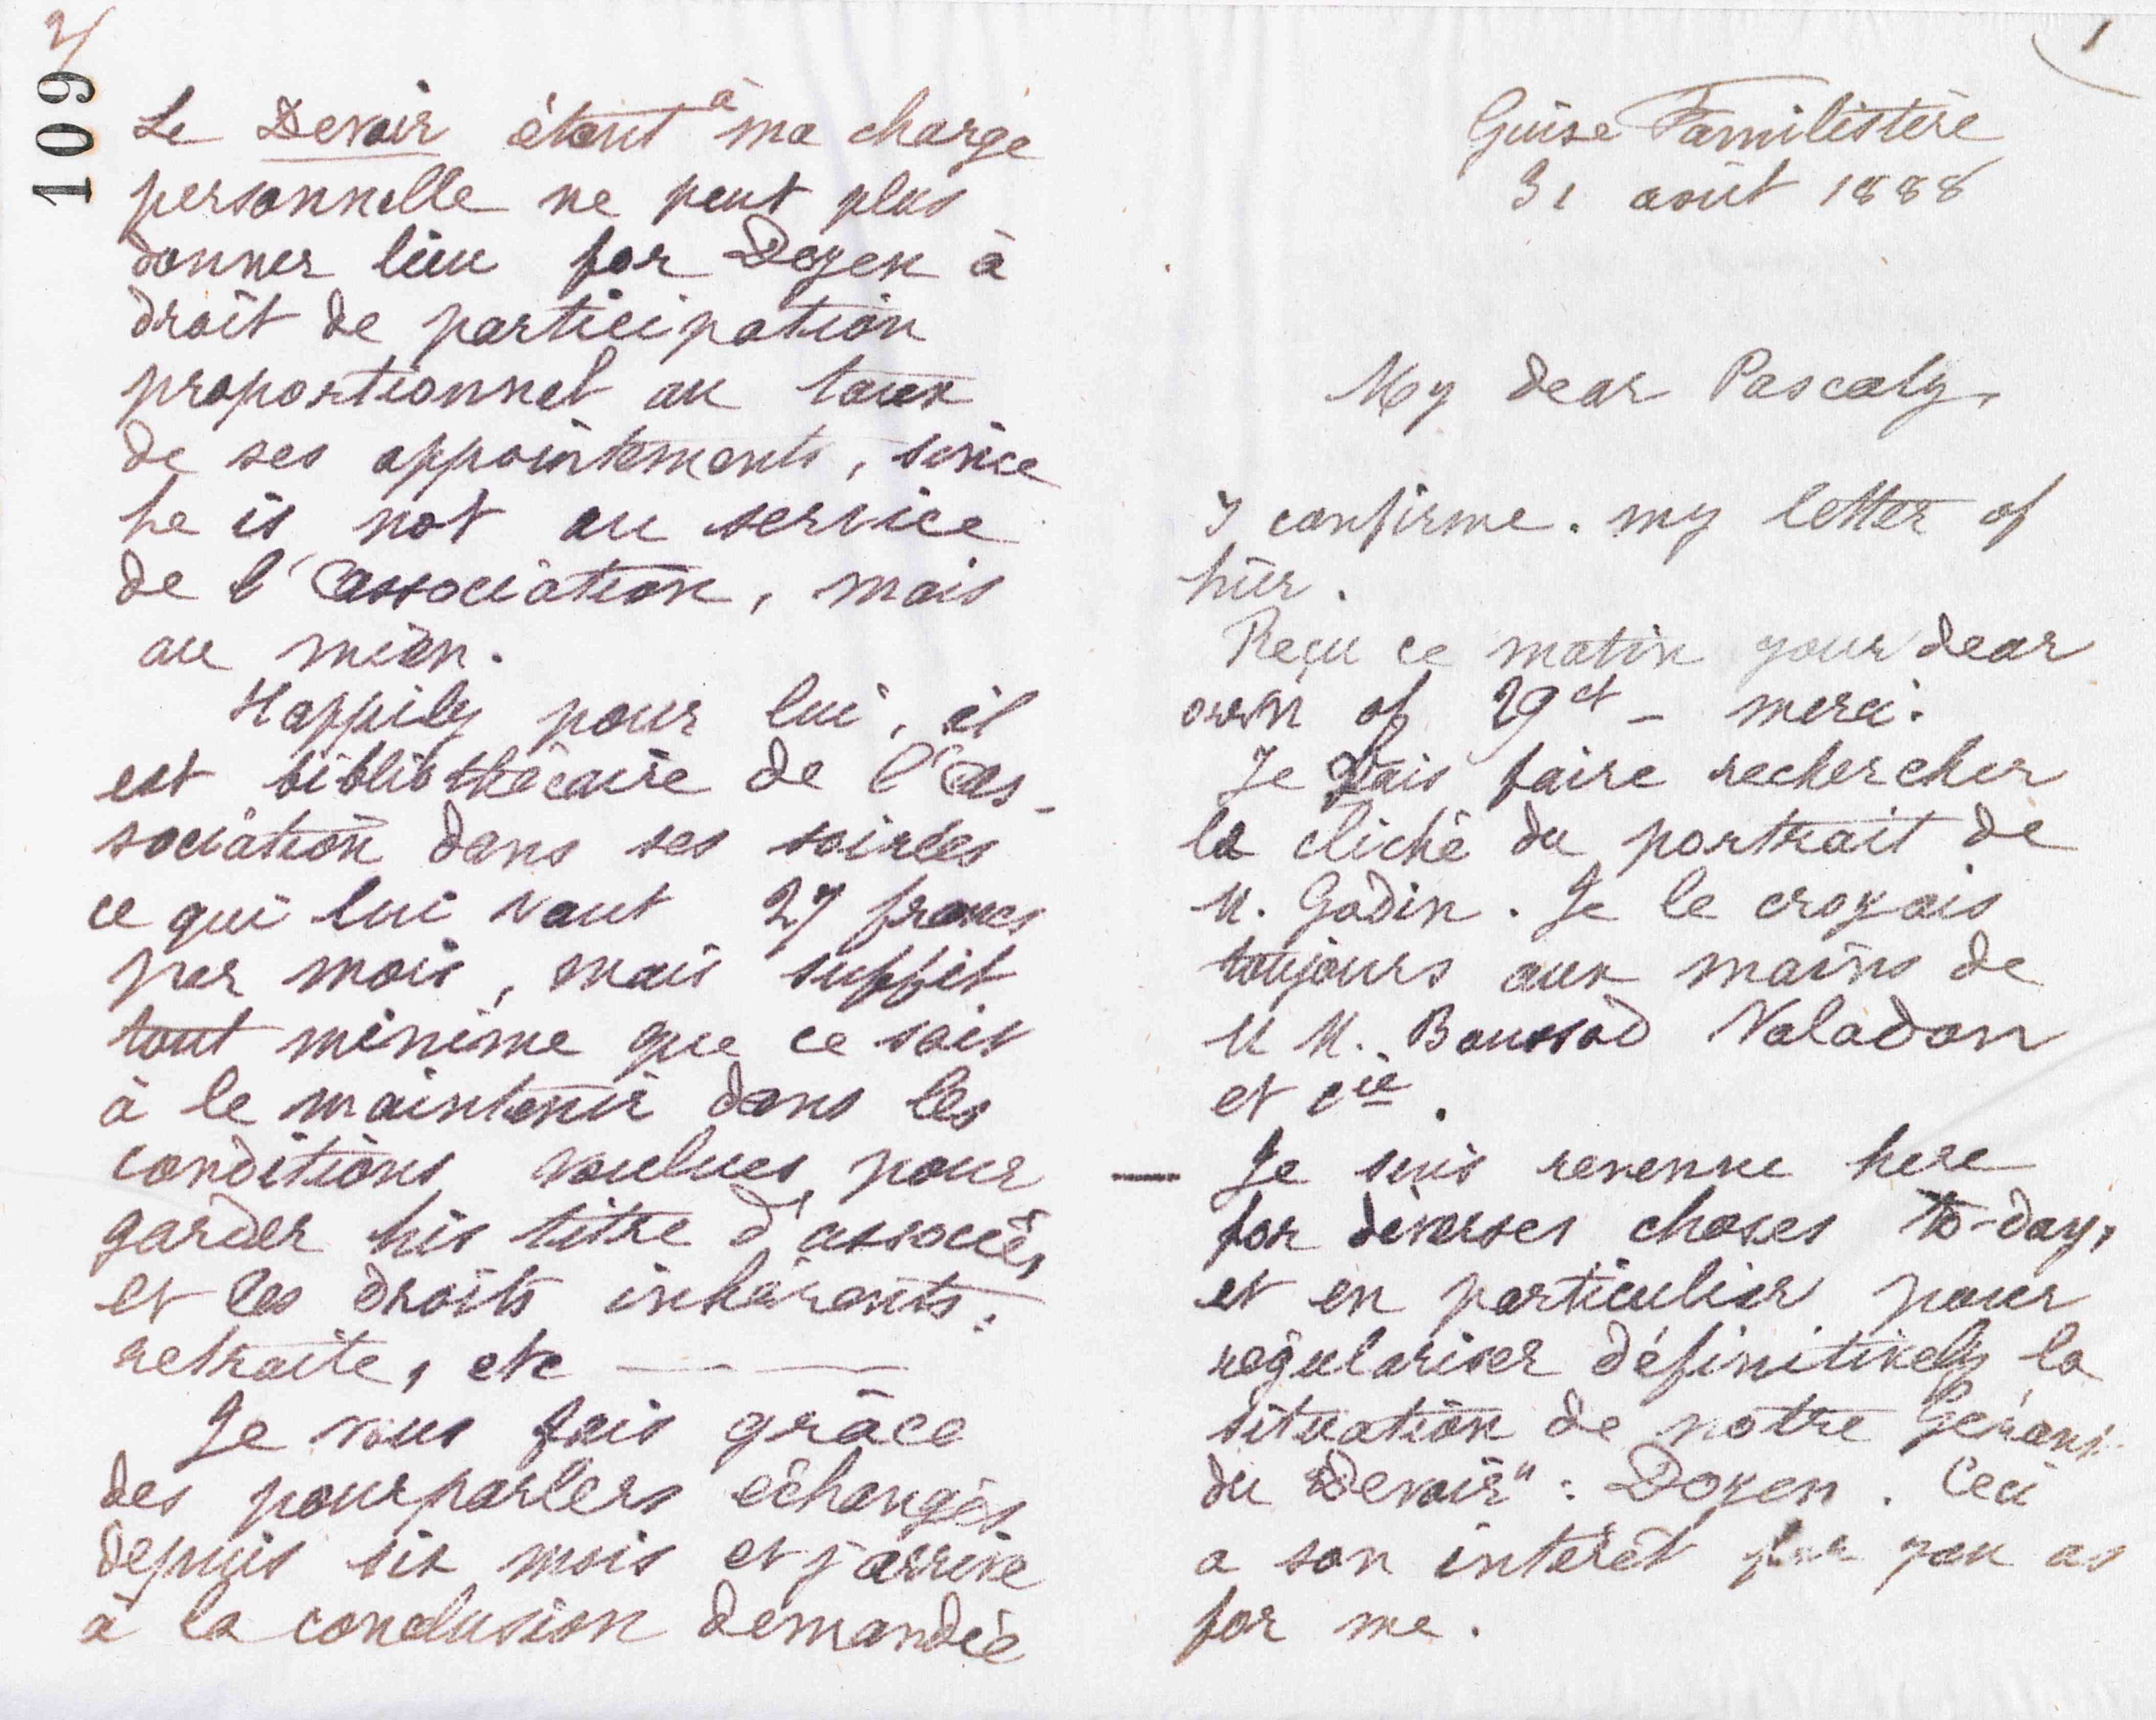 1
Guise Familistère
31 août 1888
My dear Pascaly,
I confirme. my letter of
hier.
Reçu ce matin your dear
own of 29 ct – merci.
Je vais faire rechercher
le cliché du portrait de
M. Godin. Je le croyais
toujours aux mains de
M M. Boussod Valadon
et Cie.
— Je suis revenue here
for diverses choses to-day,
et en particulier pour
régulariser définitively la
situation de notre Gérant
du "Devoir" : Doyen. Ceci
a son intérêt for you as
for me.
2/
109
Le Devoir étant à ma charge
personnelle ne peut plus
donner lieu for Doyen à
droit de participation
proportionnel au taux
de ses appointements, since
he is not au service
de l'association, mais
au mien.
Happily pour lui, il
est bibliothécaire de l'as-
sociation dans ses soirées
ce qui lui vaut 27 francs
per mois, mais suffit
tout minime que ce soit
à le maintenir dans les
conditions voulues pour
garder his titre d'associé,
et les droits inhérents :
retraite, etc — — —
Je vous fais grâce
des pourparlers échangés
depuis six mois et j'arrive
à la conclusion demandée